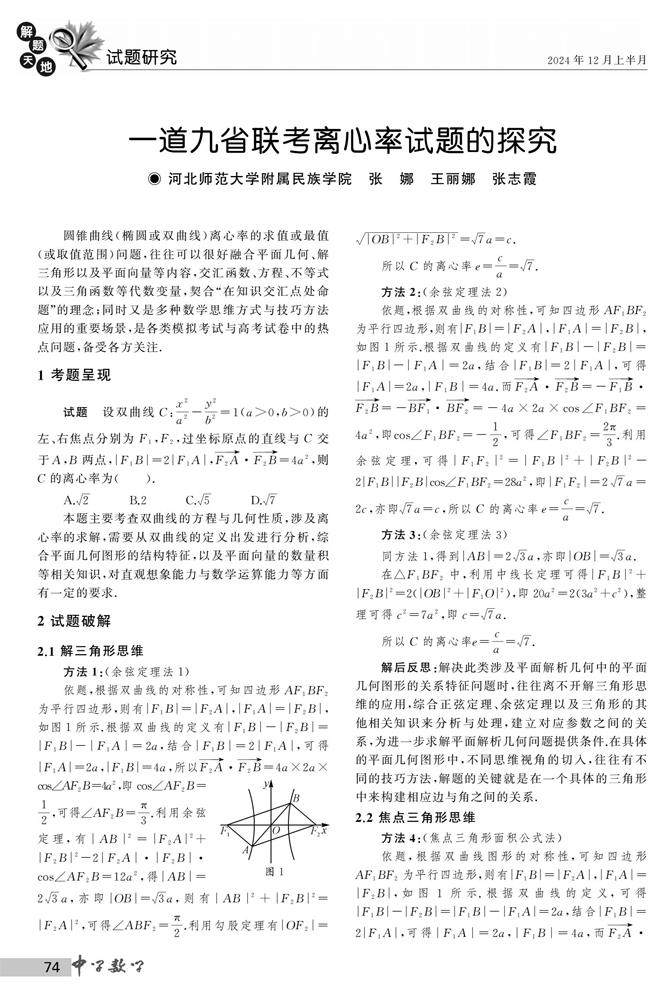 解题天地
试题研究
2024年12月上半月
一道九省联考离心率试题的探究
◉ 河北师范大学附属民族学院 张 娜 王丽娜 张志霞
圆锥曲线(椭圆或双曲线)离心率的求值或最值
(或取值范围)问题,往往可以很好融合平面几何、解
三角形以及平面向量等内容,交汇函数、方程、不等式
以及三角函数等代数变量,契合“在知识交汇点处命
题”的理念;同时又是多种数学思维方式与技巧方法
应用的重要场景,是各类模拟考试与高考试卷中的热
点问题,备受各方关注.
1 考题呈现
试题 设双曲线 C:x²/a²−y²/b²=1(a>0,b>0)的
左、右焦点分别为 F₁,F₂,过坐标原点的直线与 C 交
于A,B 两点,|F₁B|=2|F₁A|,F₂A→·F₂B→=4a²,则
C 的离心率为( ).
A.√2 B.2 C.√5 D.√7
本题主要考查双曲线的方程与几何性质,涉及离
心率的求解,需要从双曲线的定义出发进行分析,综
合平面几何图形的结构特征,以及平面向量的数量积
等相关知识,对直观想象能力与数学运算能力等方面
有一定的要求.
2 试题破解
2.1 解三角形思维
方法1:(余弦定理法1)
依题,根据双曲线的对称性,可知四边形 AF₁BF₂
为平行四边形,则有|F₁B|=|F₂A|,|F₁A|=|F₂B|,
如图1所示.根据双曲线的定义有|F₁B|−|F₂B|=
|F₁B|−|F₁A|=2a,结合|F₁B|=2|F₁A|,可得
|F₁A|=2a,|F₁B|=4a,所以F₂A→·F₂B→=4a×2a×
cos∠AF₂B=4a²,即 cos∠AF₂B=
1/2,可得∠AF₂B=π/3.利用余弦
定理,有|AB|²=|F₂A|²+
|F₂B|²−2|F₂A|·|F₂B|·
cos∠AF₂B=12a²,得|AB|=
y
B
F₁
O
F₂
x
A
图1
2√3a,亦即|OB|=√3a,则有|AB|²+|F₂B|²=
|F₂A|²,可得∠ABF₂=π/2.利用勾股定理有|OF₂|=
√(|OB|²+|F₂B|²)=√7a=c.
所以 C 的离心率 e=c/a=√7.
方法2:(余弦定理法2)
依题,根据双曲线的对称性,可知四边形 AF₁BF₂
为平行四边形,则有|F₁B|=|F₂A|,|F₁A|=|F₂B|,
如图1所示.根据双曲线的定义有|F₁B|−|F₂B|=
|F₁B|−|F₁A|=2a,结合|F₁B|=2|F₁A|,可得
|F₁A|=2a,|F₁B|=4a.而F₂A→·F₂B→=−F₁B→·
F₂B→=−BF₁→·BF₂→=−4a×2a×cos∠F₁BF₂=
4a²,即cos∠F₁BF₂=−1/2,可得∠F₁BF₂=2π/3.利用
余弦定理,可得|F₁F₂|²=|F₁B|²+|F₂B|²−
2|F₁B||F₂B|cos∠F₁BF₂=28a²,即|F₁F₂|=2√7a=
2c,亦即√7a=c,所以 C 的离心率 e=c/a=√7.
方法3:(余弦定理法3)
同方法1,得到|AB|=2√3a,亦即|OB|=√3a.
在△F₁BF₂ 中,利用中线长定理可得|F₁B|²+
|F₂B|²=2(|OB|²+|F₁O|²),即20a²=2(3a²+c²),整
理可得 c²=7a²,即 c=√7a.
所以 C 的离心率e=c/a=√7.
解后反思:解决此类涉及平面解析几何中的平面
几何图形的关系特征问题时,往往离不开解三角形思
维的应用,综合正弦定理、余弦定理以及三角形的其
他相关知识来分析与处理,建立对应参数之间的关
系,为进一步求解平面解析几何问题提供条件.在具体
的平面几何图形中,不同思维视角的切入,往往有不
同的技巧方法,解题的关键就是在一个具体的三角形
中来构建相应边与角之间的关系.
2.2 焦点三角形思维
方法4:(焦点三角形面积公式法)
依题,根据双曲线图形的对称性,可知四边形
AF₁BF₂ 为平行四边形,则有|F₁B|=|F₂A|,|F₁A|=
|F₂B|,如图1所示.根据双曲线的定义,可得
|F₁B|−|F₂B|=|F₁B|−|F₁A|=2a,结合|F₁B|=
2|F₁A|,可得|F₁A|=2a,|F₁B|=4a,而F₂A→·
74 中学数学